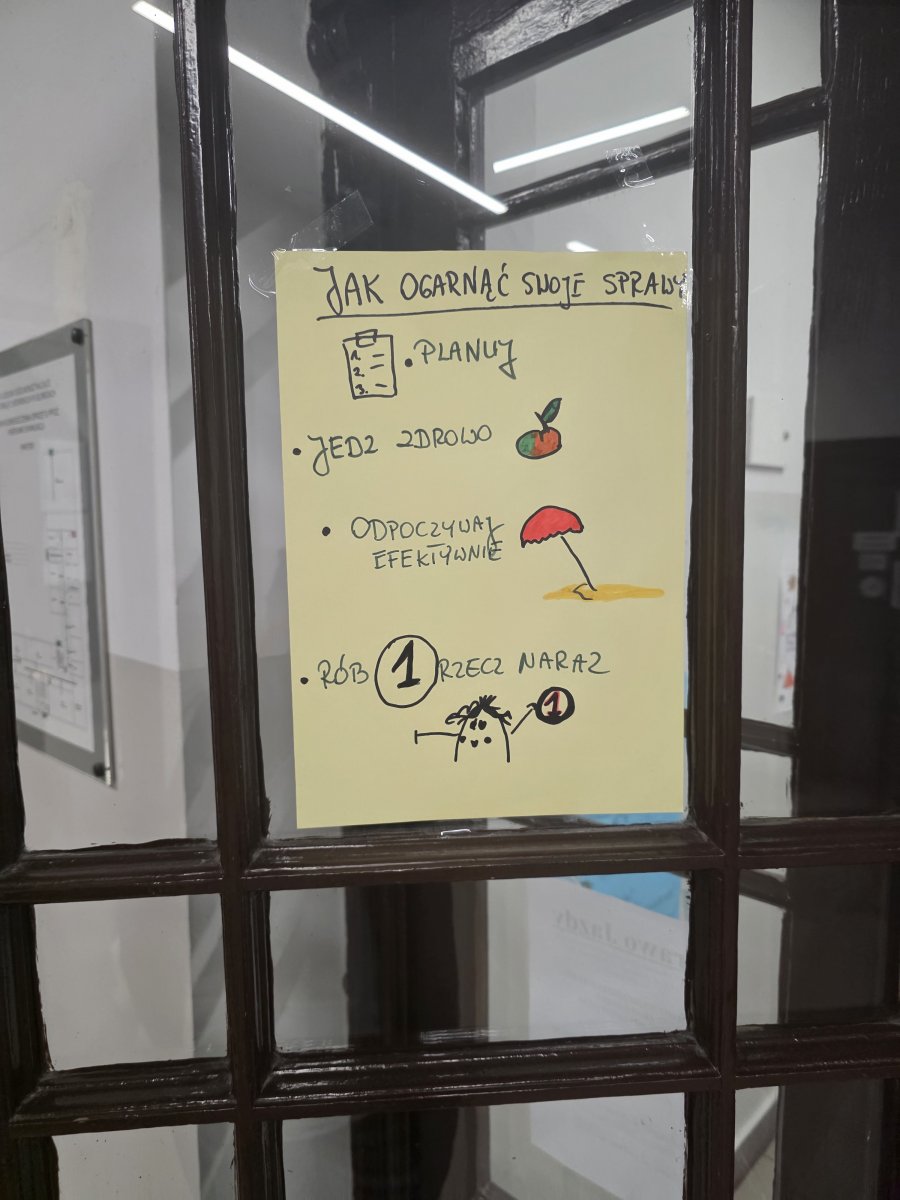 JAK OGARNĄĆ SWOJE SPRAWY
1.
2.
3.
• PLANUJ
• JEDZ ZDROWO
• ODPOCZYWAJ
EFEKTYWNIE
• RÓB 1 RZECZ NARAZ
1
rawo Jazdy